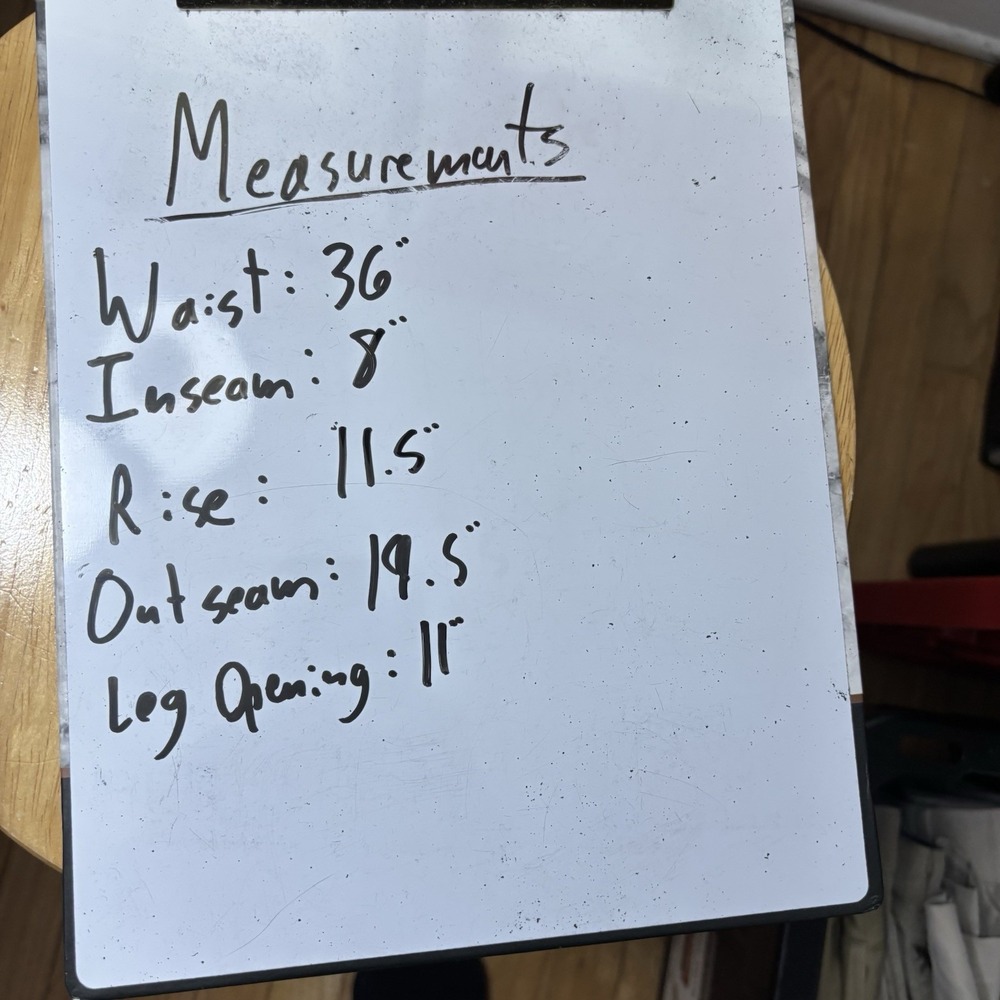 Measurements
Waist: 36"
Inseam: 8"
Rise: 11.5"
Outseam: 19.5"
Leg Opening: 11"